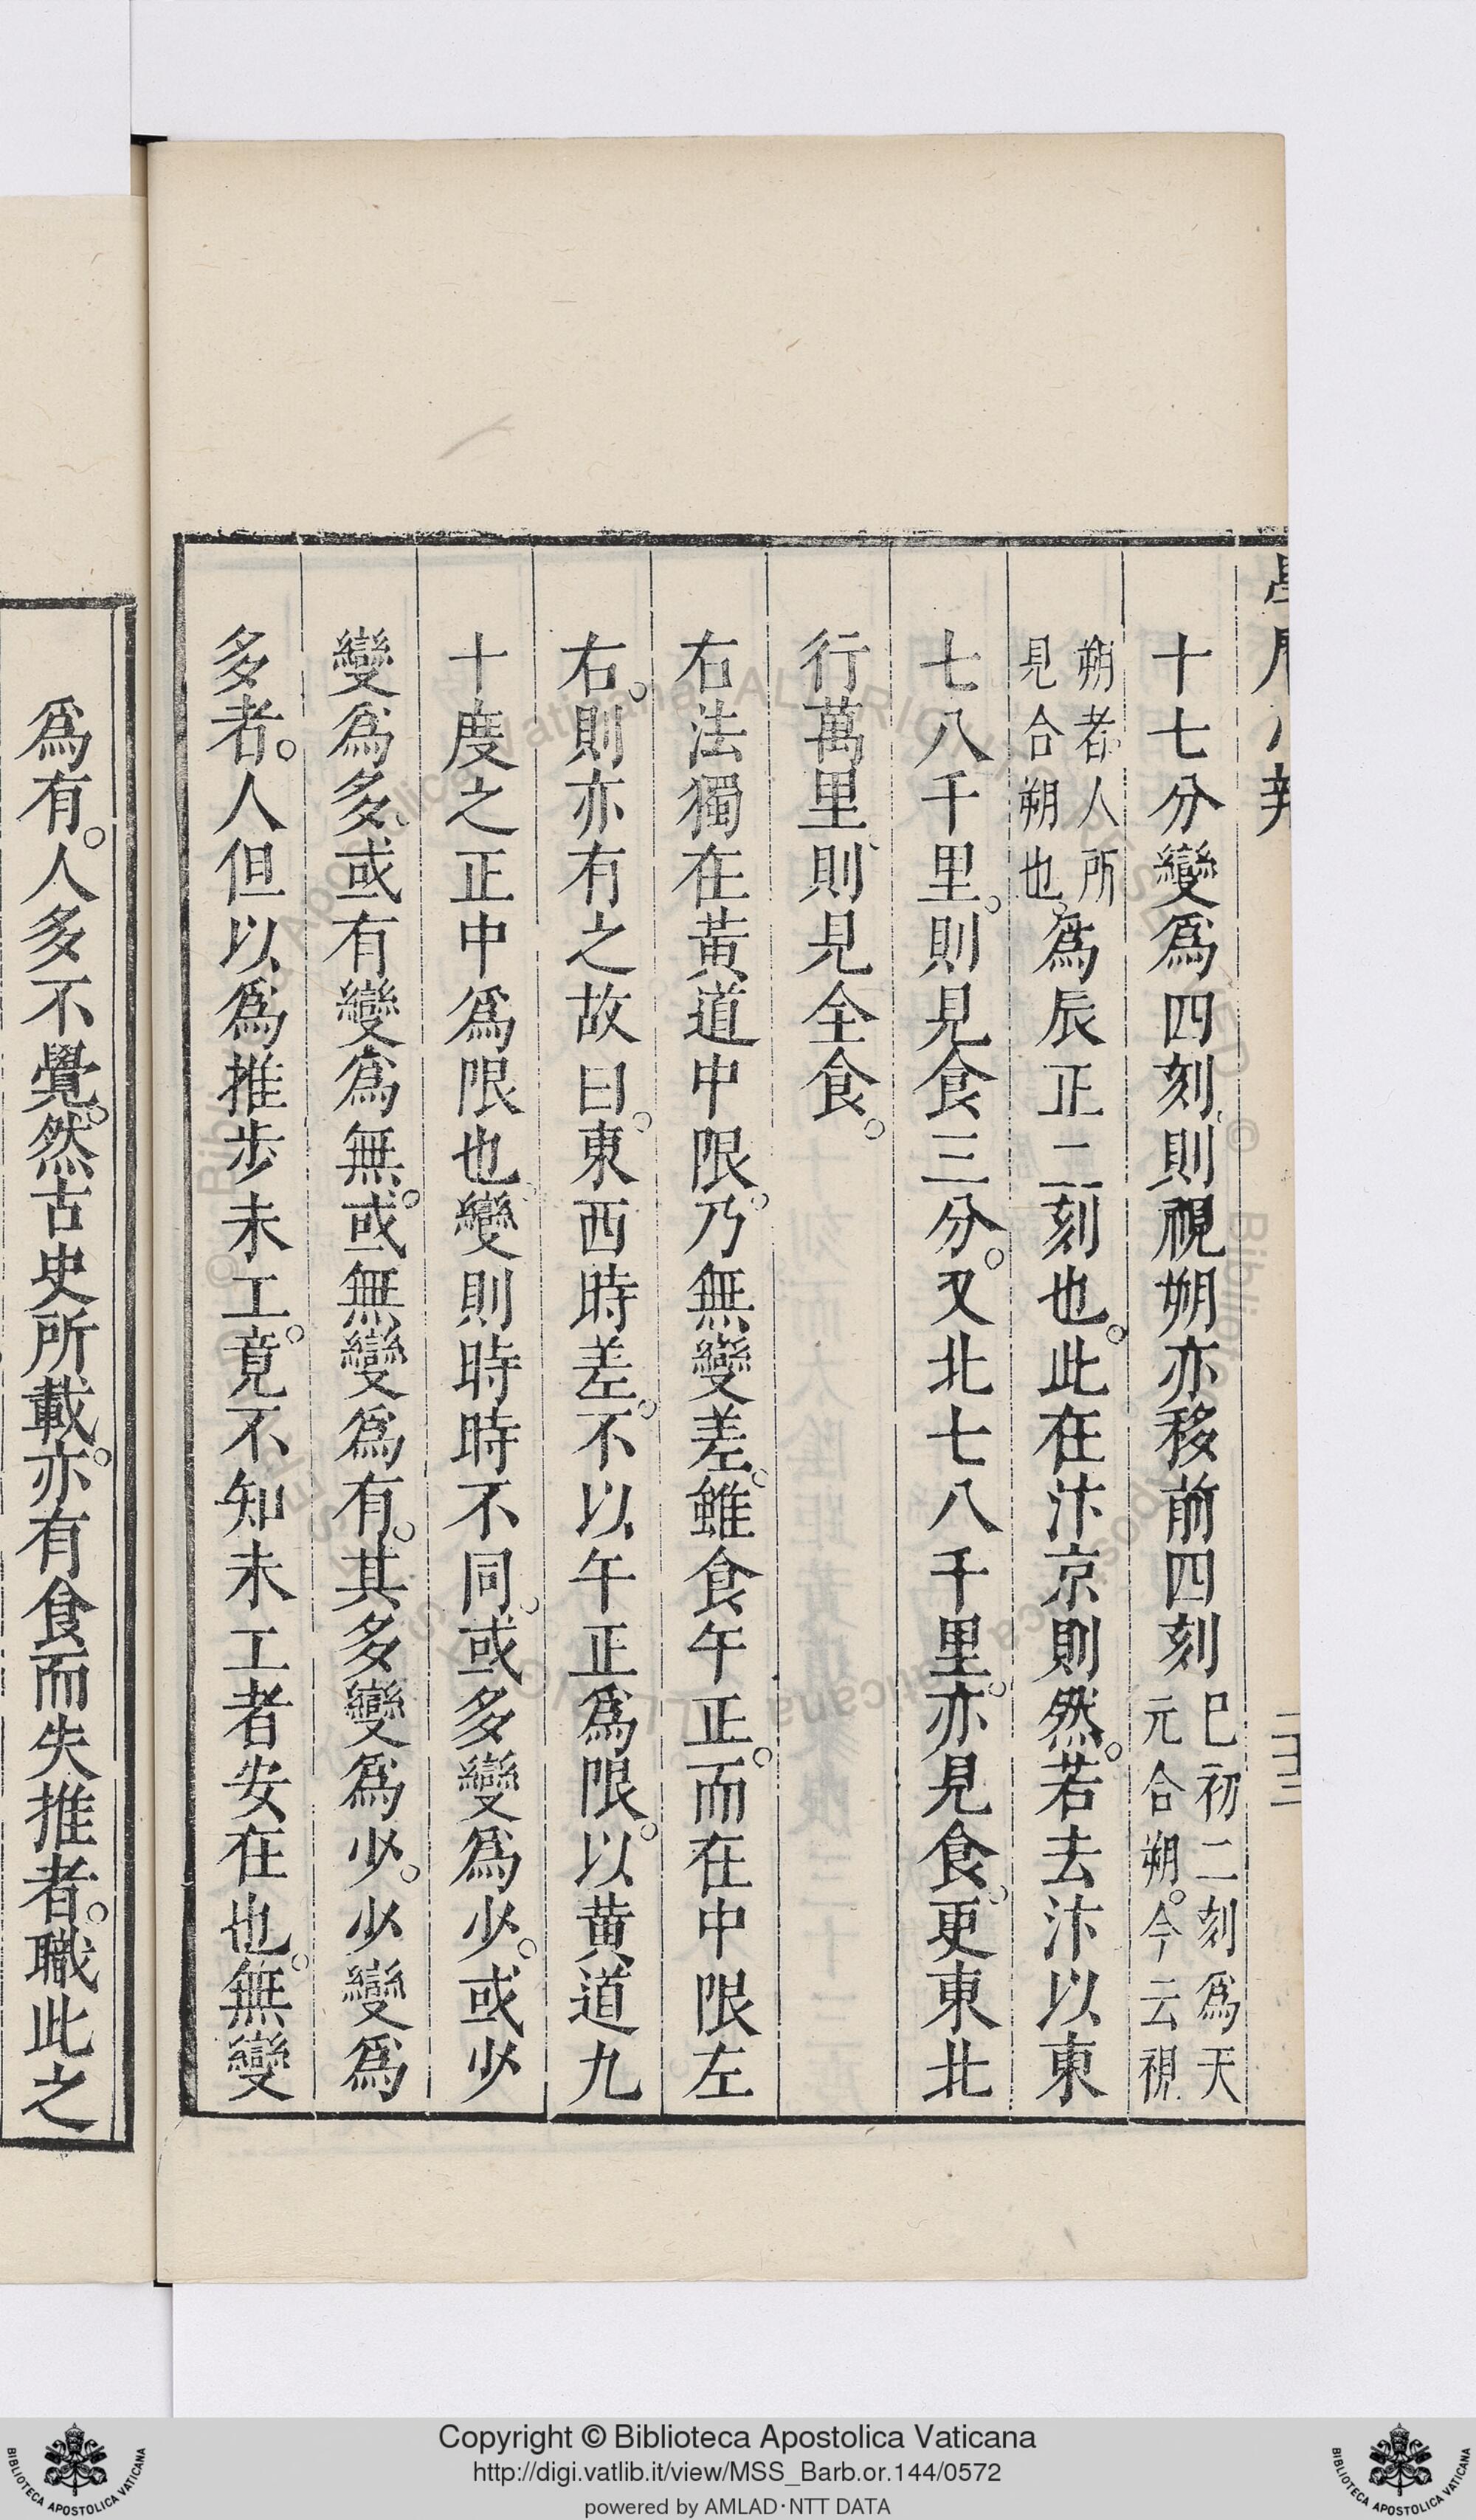 十七分變爲四刻、則視朔亦移前四刻巳初二刻爲天元合朔。今云視
朔者、人所見合朔也。爲辰正二刻也。此在汴京則然。若去汴以東
七八千里。則見食三分。又北七八千里。亦見食。更東北
行萬里、則見全食。
右法獨在黃道中限。乃無變差。雖食午正。而在中限左
右。則亦有之故曰。東西時差。不以午正爲限。以黃道九
十度之正中爲限也。變則時時不同。或多變爲少。或少
變爲多。或有變爲無。或無變爲有。其多變爲少。少變爲
多者。人但以爲推步未工。竟不知未工者安在也。無變
爲有。人多不覺。然古史所載。亦有食而失推者。職此之
二十三
Copyright © Biblioteca Apostolica Vaticana
http://digi.vatlib.it/view/MSS_Barb.or.144/0572
powered by AMLAD·NTT DATA
BIBLIOTECA APOSTOLICA VATICANA
BIBLIOTECA APOSTOLICA VATICANA